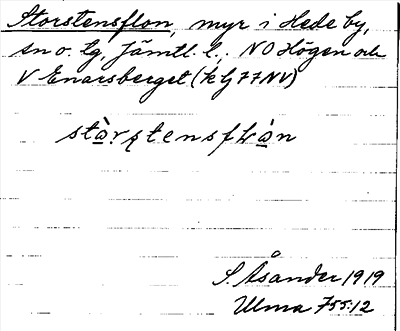 Storstensflon, myr i Hede by,
sn o. tg, Jämtl. l., NO Högen och
V Enarsberget (kbl 77 NV)
stὰrstensflὰn
S. Åsander 1919
Ulma 755:12